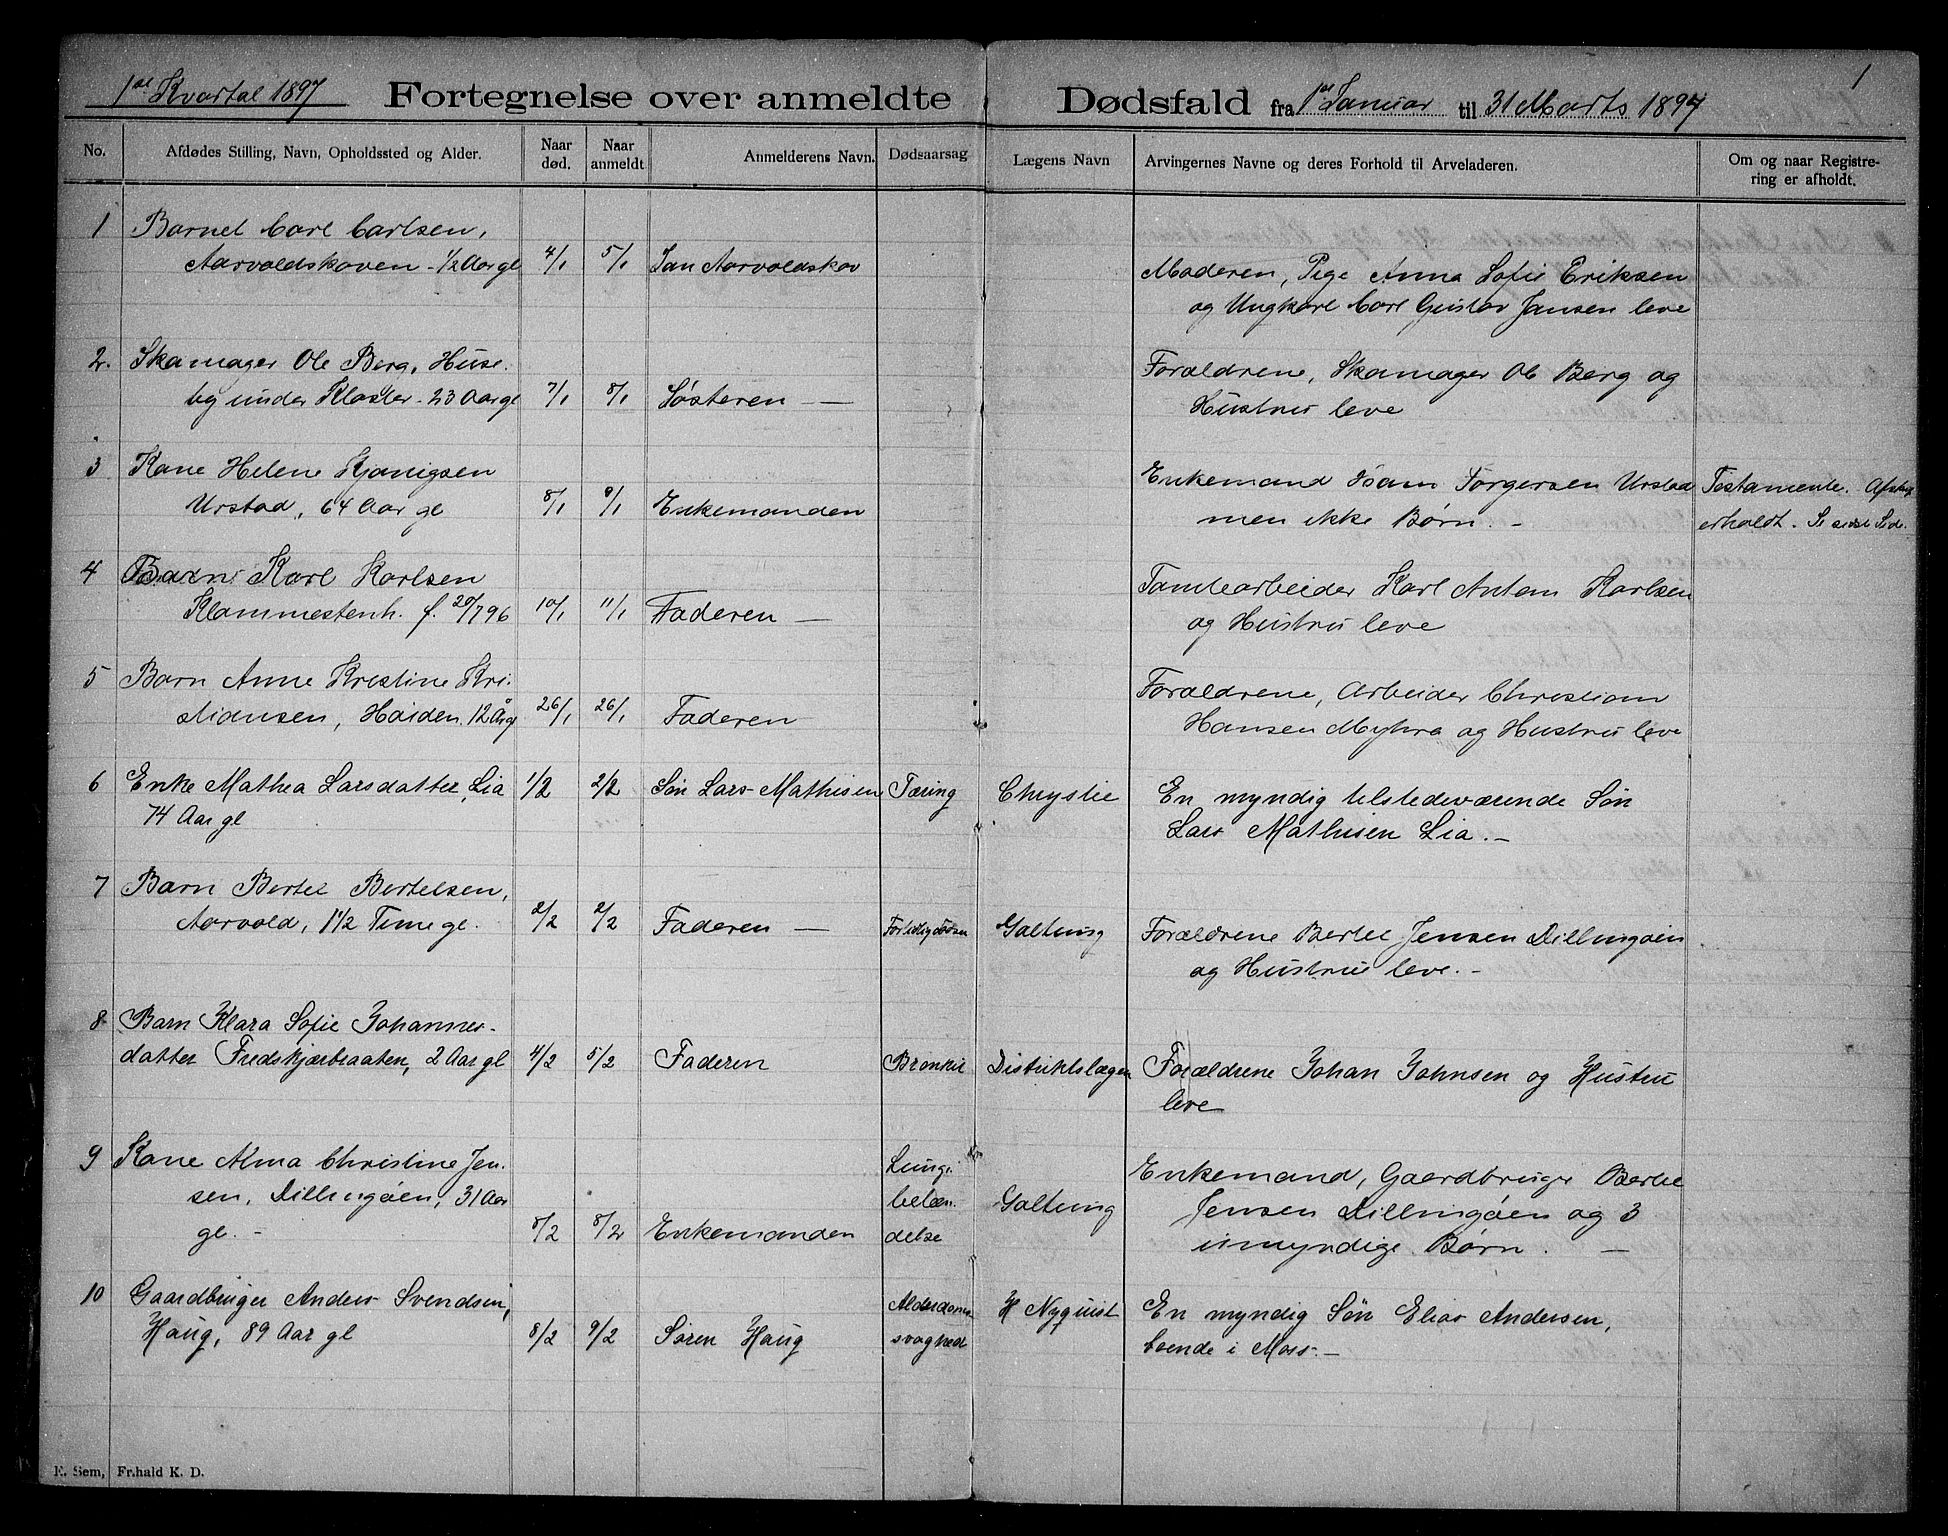 1ste Kvartal 1897 Fortegnelse over anmeldte Dødsfald fra 1ste Januar til 31 Marts 1897
1
No. Afdødes Stilling, Navn, Opholdssted og Alder. Naar død. Naar anmeldt Anmelderens Navn. Dødsaarsag Lægens Navn Arvingernes Navne og deres Forhold til Arveladeren. Om og naar Registrering er afholdt.
1 Barnet Carl Carlsen,
Aarvoldskoven - 1/2 Aar gl 4/1 5/1 Jan Aarvoldskov
Moderen, Pige Anna Sofie Eriksen
og Ungkarl Carl Gustav Jansen leve
2. Skomager Ole Berg, Huse-
by under Kloster - 23 Aar gl 7/1 8/1 Søsteren —
Forældrene, Skomager Ole Berg og
Hustru leve
3 Kone Helene
Urstad, 64 Aar gl 8/1 9/1 Enkemanden
Enkemand Torgersen Urstad
men ikke Børn. -
Testamente.
erholdt. Se sidste Side.
4 Barn Karl Karlsen
Klommestenh. f. 20/7 96 10/1 11/1 Faderen —
Tomtearbeider Karl Anton Karlsen
og Hustru leve
5 Barn Anne Kristine Kri-
stiansen, Hoiden, 12 År gl 26/1 26/1 Faderen
Forældrene, Arbeider Christian
Hansen Myhra og Hustru leve
6 Enke Mathea Larsdatter, Lia 1/2 2/2 Søn Lars Mathisen Tæring Chrystie En myndig tilstedeværende Søn
74 Aar gl
Lars Mathisen Lia. -
7 Barn Bertel Bertelsen,
Aarvold, 1 1/2 Time gl. 2/2 2/2 Faderen — Galtung Forældrene Bertel Jensen Dillingøen
og Hustru leve. -
8 Barn Klara Sofie Johannes-
datter Fredskjærbraaten, 2 Aar gl 4/2 5/2 Faderen Bronkit Distriktslægen Forældrene Johan Johnsen og Hustru
leve
9 Kone Alma Christine Jen-
sen, Dillingøen, 31 Aar
gl. - 8/2 8/2 Enkemanden
Lunge-
betæn-
delse
Galtung
Enkemand, Gaardbruger Bertel
Jensen Dillingøen og 3
umyndige Børn. —
10 Gaardbruger Anders Svendsen,
Haug, 89 Aar gl 8/2 9/2 Søren Haug
Alderdoms-
svaghed
H Nyquist
En myndig Søn Elias Andersen,
boende i Moss. -
E. Sem, Fr.hald K. D.